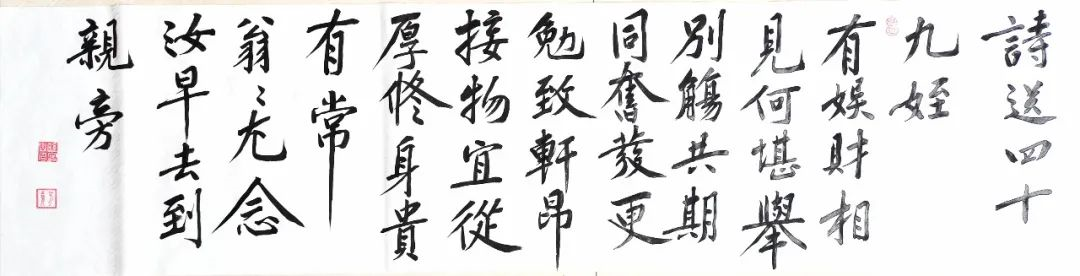 詩送四十
九姪
有娱財相
見何堪舉
別觴共期
同奮發更
勉致軒昂
接物宜從
厚修身貴
有常
翁〻尤念
汝早去到
親旁